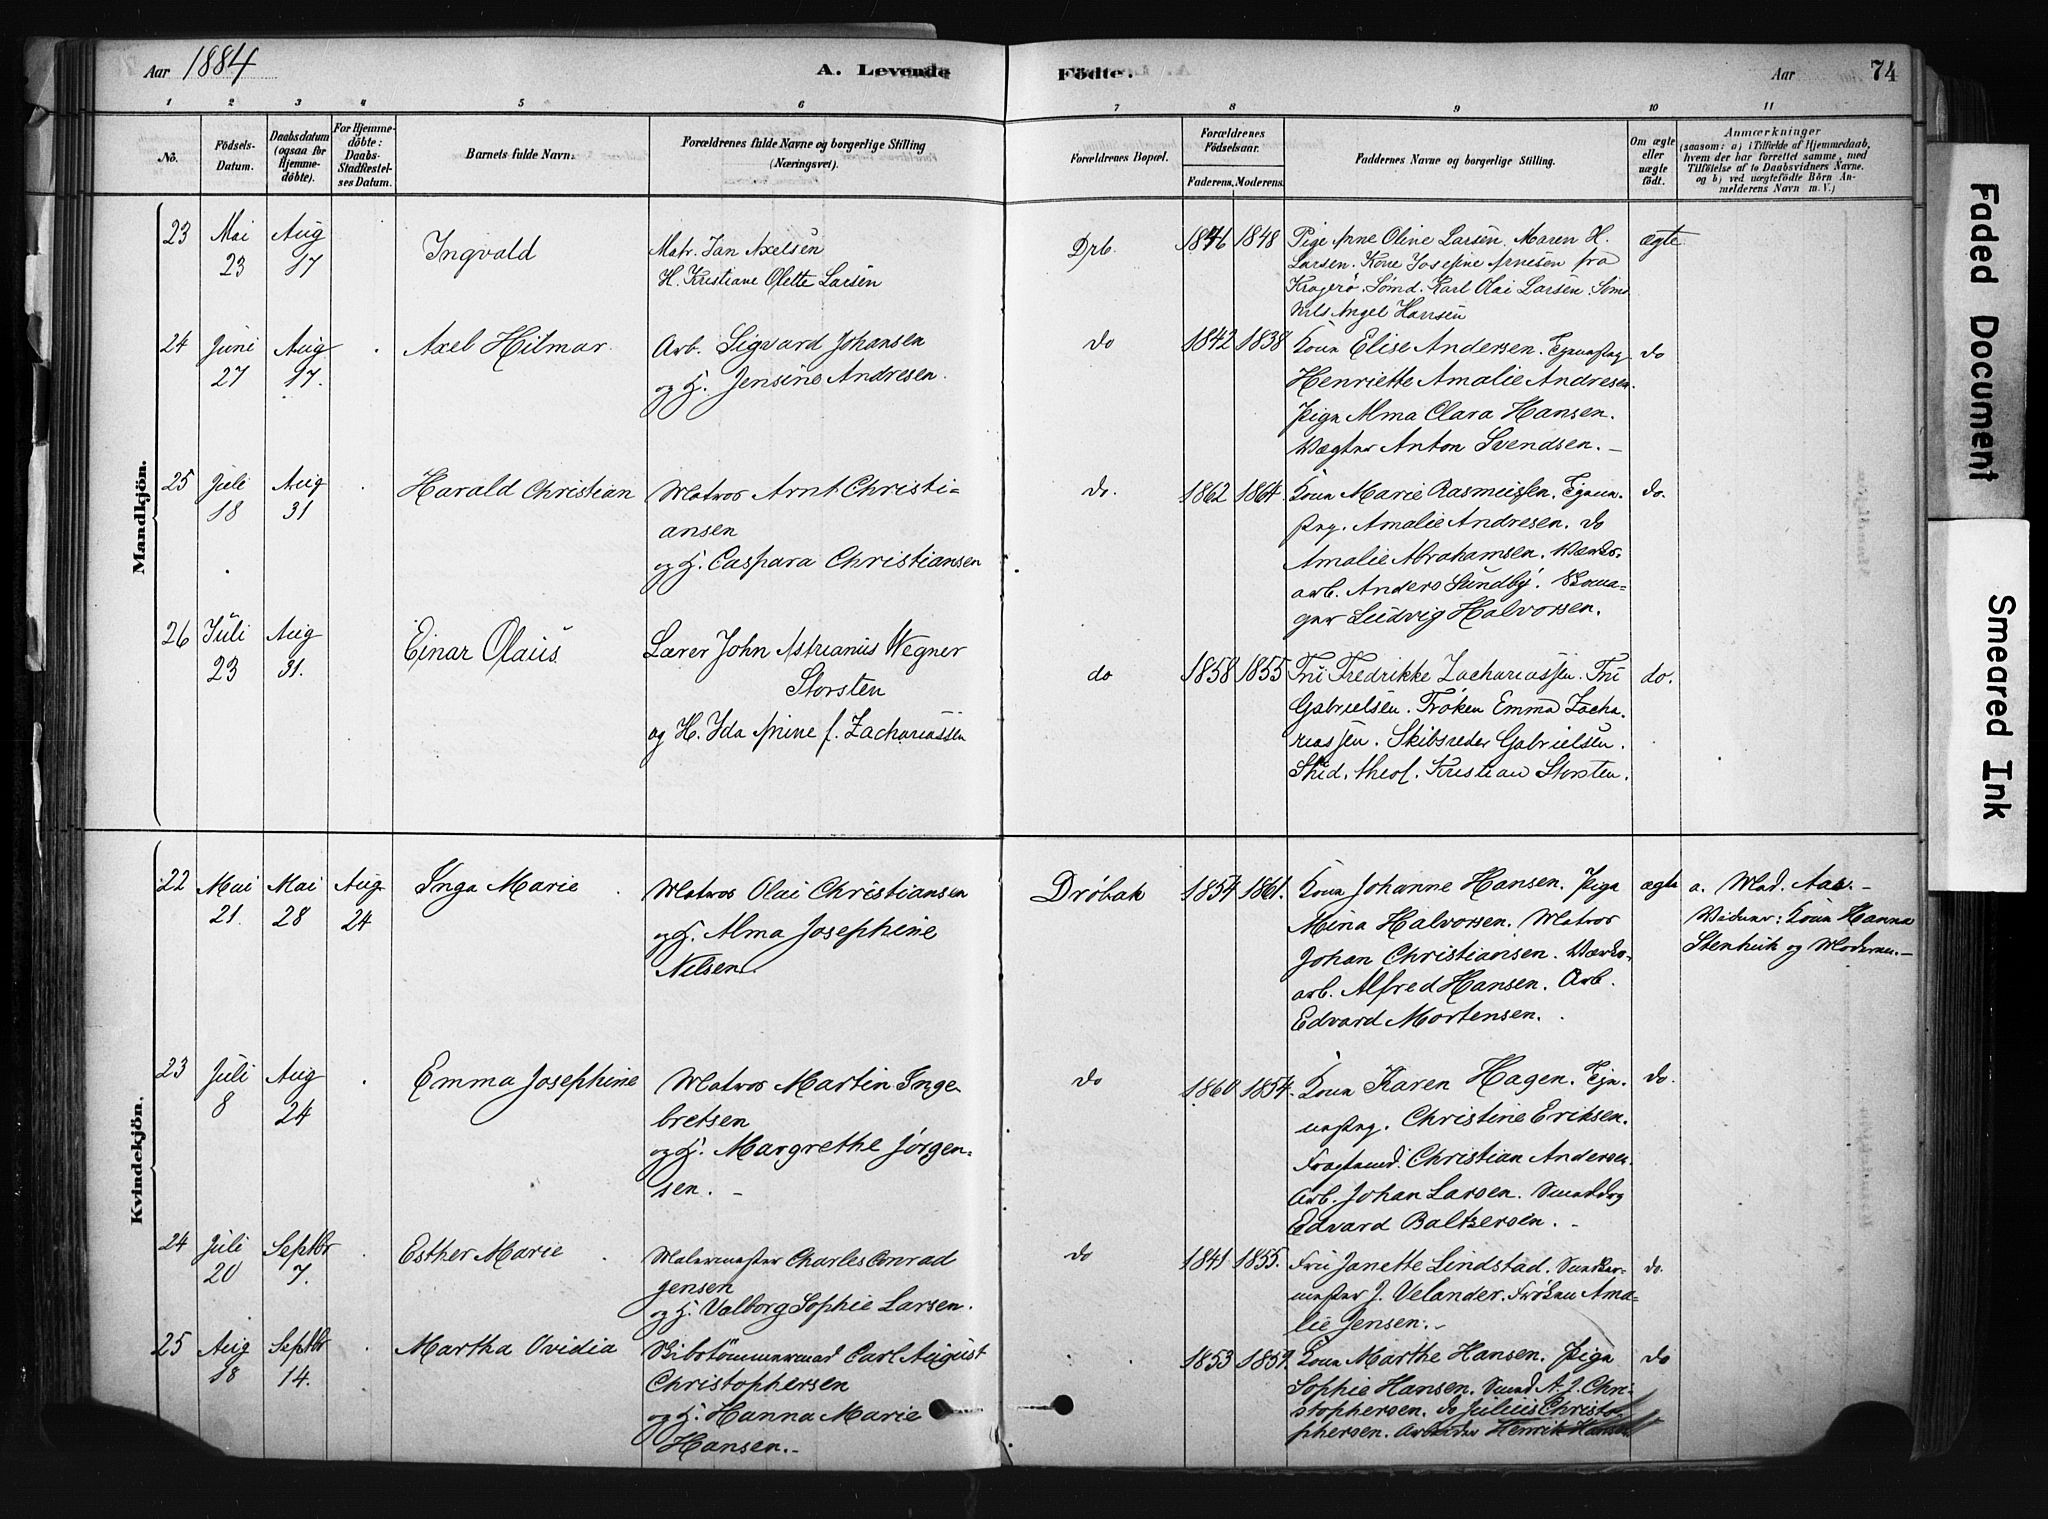 Aar 1884
A. Levende
Födte.
Aar
74
1 2 3 4 5 6 7 8 9 10 11
No.
Födsels-
Datum.
Daabsdatum
(ogsaa for
Hjemme-
döbte).
For Hjemme-
döbte:
Daabs-
Stadfæstel-
ses Datum.
Barnets fulde Navn.
Forældrenes fulde Navne og borgerlige Stilling
(Næringsvei).
Forældrenes Bopæl.
Forældrenes
Födselsaar.
Faderens. Moderens.
Faddernes Navne og borgerlige Stilling.
Om ægte
eller
uægte
födt.
Anmærkninger
(saasom: a) i Tilfælde af Hjemmedaab,
hvem der har forrettet samme, med
Tilföielse af to Daabsvidners Navne.
og b) ved uægtefödte Börn An-
melderens Navn m. V.)
Mandkjön.
23
Mai
23
Aug
17
Ingvald
Matr. Jan Axelsen
H. Kristiane Olette Larsen
Drb.
1846
1848
Pige Anne Oline Larsen. Maren H.
Larsen. Kone Josefine Arnesen fra
Kragerø. Sømd. Karl Olai Larsen. Sømd
Nils Angel Hansen
ægte
24
Juni
27
Aug
17.
Axel Hilmar
Arb. Sigvard Johansen
og H. Jensine Andresen.
do
1842
1838
Kone Elise Andersen.
Henriette Amalie Andresen.
Pige Alma Clara Hansen.
Vægter Anton Svendsen. –
do
25
Juli
18
Aug
31
Harald Christian
Matros Arnt Christi-
ansen
og H. Caspara Christiansen
do.
1862
1864.
Kone Marie Rasmussen.
Amalie Andresen. do
Amalie Abrahamsen. Værks-
arb. Anders Sundby.
Ludvig Halvorsen.
do.
26
Juli
23
Aug
31.
Einar Olaus
Lærer John Astrianus Wegner
Storsten
og H. Ida Anine f. Zachariassen
do
1858
1855
Fru Fredrikke Zachariassen. Fru
Gabrielsen. Frøken Emma Zacha-
riassen. Skibsreder Gabrielsen.
Stud. theol. Kristian Storsten.
do.
Kvindekjön.
22
Mai
21.
Mai
28
Aug
24
Inga Marie
Matros Olai Christiansen
og H. Alma Josephine
Nilsen.
Drøbak
1854
1861.
Kone Johanne Hansen. Pige
Mina Halvorsen. Matros
Johan Christiansen. Værks-
arb. Alfred Hansen. Arb.
Edvard Mortensen.
ægte
a. Mad. Aas. –
Vidner: Kone Hanna
Stenhuk og Moderen. –
23
Juli
8
Aug
24
Emma Josephine
Matros Martin Inge-
bretsen
og H. Margrethe Jørgen-
sen. –
do
1860
1854.
Kone Karen Hagen.
Christine Eriksen.
Christian Andersen.
Arb. Johan Larsen.
Edvard Baltzersen. –
do.
24
Juli
20
Septbr
7.
Esther Marie
Malermester Charles Conrad
Jensen
og H. Valborg Sophie Larsen.
do
1841
1855.
Fru Janette Lindstad.
mester J. Velander. Frøken Ama-
lie Jensen. –
do.
25
Aug
18
Septbr
14.
Martha Ovidia
Skibstømmermand Carl August
Christophersen
og H. Hanna Marie
Hansen. –
1853
1859
Kone Marthe Hansen. Pige
Sophie Hansen. A. J. Chri-
stophersen. do Julius Christo-
phersen. Arbeider Henrik Hansen
do
Faded Document
Smeared Ink